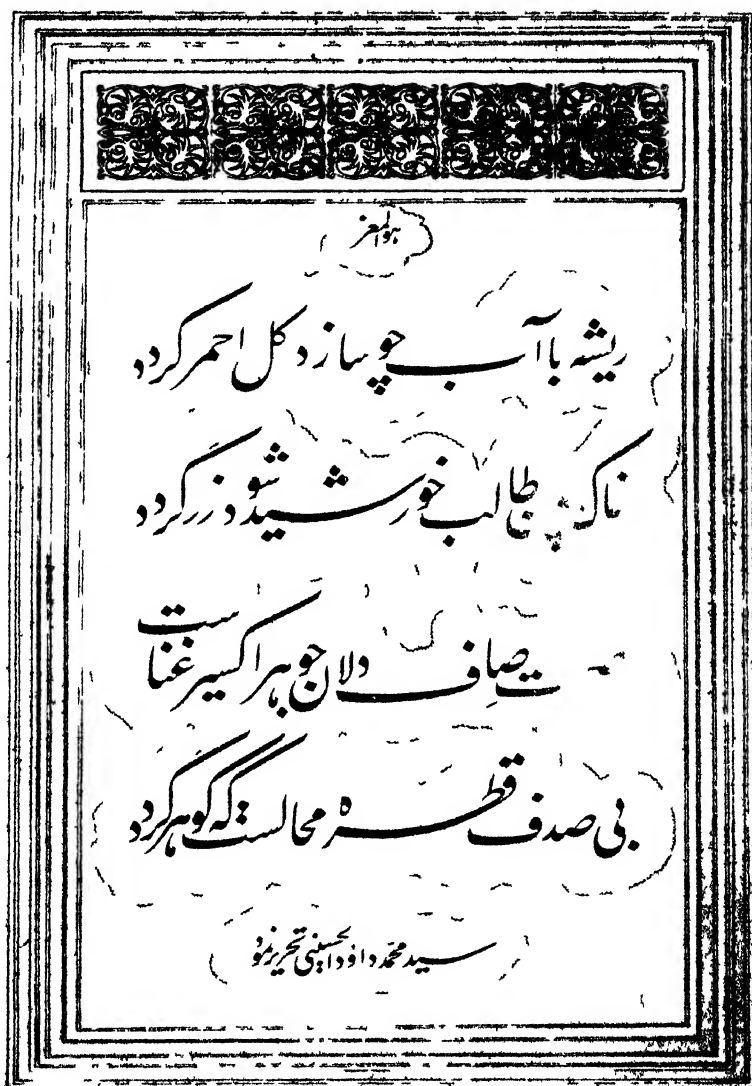 هوالمعز
ریشه با آب چو سازد گل احمر گردد
خاک چو طالب خورشید شود زر گردد
ت صاف دلان جوهر اکسیر غناست
بی صدف قطره محالست که گوهر گردد
سید محمد داؤد الحسینی تحریر نمود